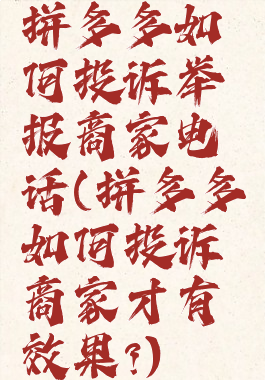 拼多多如
何投诉举
报商家电
话(拼多多
如何投诉
商家才有
效果?)